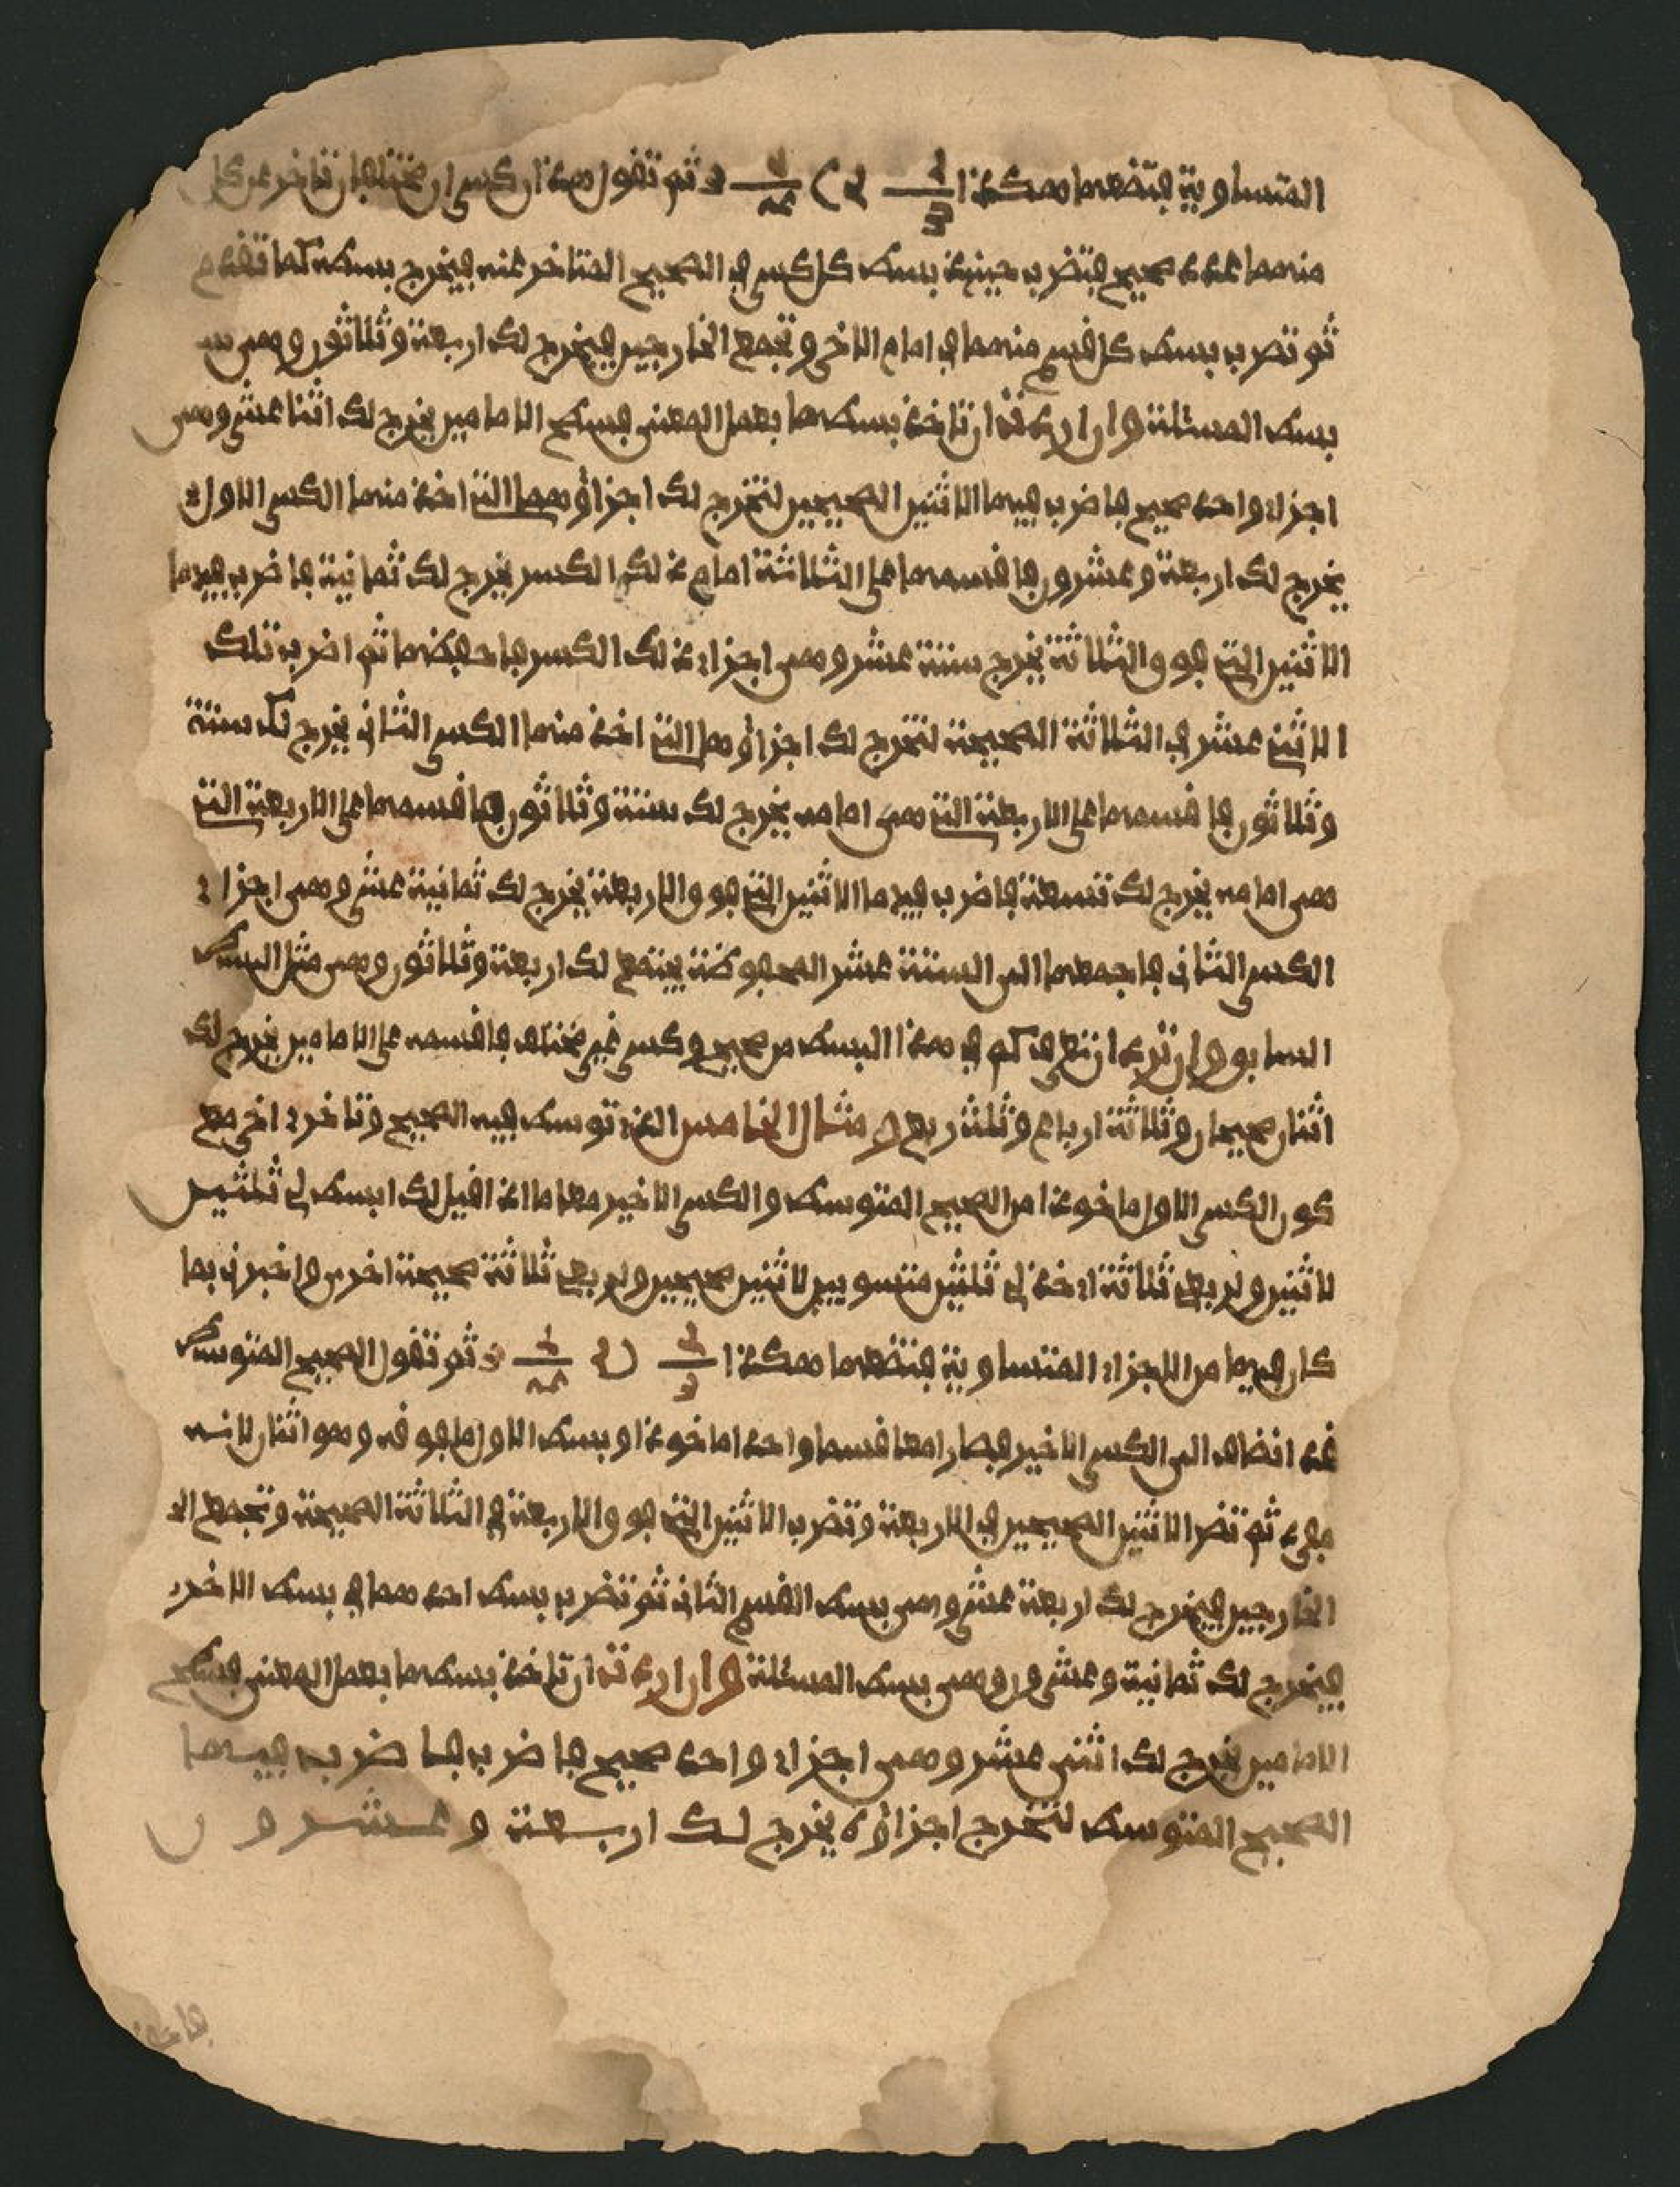 المتساوية فتضعهما هكذا ثم تقول هذان كسران مختلفان تاخر عن كل
منهما عدد صحيح فتضرب حينئذ بسط كل كسر في الصحيح المتاخر عنه فيخرج بسطه كما تقدم
ثم تضرب بسط كل قسم منهما في امام الاخر وتجمع الخارجين فيخرج لك اربعة وثلاثون وهي
بسط المسئلة وان اردت ان تاخذ بسطها بعمل المعنى فسطح الامامين يخرج لك اثنا عشر وهي
اجزاء واحد صحيح فاضرب فيها الاثنين الصحيحين لتخرج لك اجزاؤهما التي اخذ منها الكسر الاول
يخرج لك اربعة وعشرون فاقسمها على الثلاثة امام ذلك الكسر يخرج لك ثمانية فاضرب فيها
الاثنين التي فوق الثلاثة يخرج ستة عشر وهي اجزاء ذلك الكسر فاحفظها ثم اضرب تلك
الاثني عشر في الثلاثة الصحيحة لتخرج لك اجزاؤها التي اخذ منها الكسر الثاني يخرج لك ستة
وثلاثون فاقسمها على الاربعة التي هي امامه يخرج لك ستة وثلاثون فاقسمها على الاربعة التي
هي امامه يخرج لك تسعة فاضرب فيها الاثنين التي فوق الاربعة يخرج لك ثمانية عشر وهي اجزاء
الكسر الثاني فاجمعها الى الستة عشر المحفوظة يجتمع لك اربعة وثلاثون وهي مثل البسط
السابق وان ترد ان تعرف كم في هذا البسط من صحيح وكسر غير مختلف فاقسمه على الامامين يخرج لك
اثنان صحيحان وثلاثة ارباع وثلث ربع ومثال الخامس الذي توسط فيه الصحيح وتاخر اخر مع
كون الكسر الاول ماخوذا من الصحيح المتوسط والكسر الاخير معا ما اذا قيل لك ابسط لي ثلثين
لاثنين ولربعي ثلاثة اي خذ لي ثلثين متسويين لاثنين صحيحين ولربعي ثلاثة صحيحة اخرى واخبرني بما
كان فيهما من الاجزاء المتساوية فتضعهما هكذا ثم تقول الصحيح المتوسط
قد انضاف الى الكسر الاخير فصارا معا قسما واحدا ماخوذا وبسط الاول ما فوقه وهو اثنان لانه
مفرد ثم تضرب الاثنين الصحيحين في الاربعة وتضرب الاثنين التي فوق الاربعة في الثلاثة الصحيحة وتجمع
الخارجين فيخرج لك اربعة عشر وهي بسط القسم الثاني ثم تضرب بسط احدهما في بسط الاخر
فيخرج لك ثمانية وعشرون وهي بسط المسئلة وان اردت ان تاخذ بسطها بعمل المعنى فسطح
الامامين يخرج لك اثنى عشر وهي اجزاء واحد صحيح فاضرب فيها
الصحيح المتوسط لتخرج اجزاؤه يخرج لك اربعة وعشرون